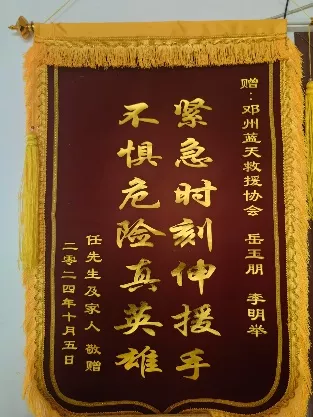 赠：邓州蓝天救援协会 岳玉朋 李明举
紧急时刻伸援手
不惧危险真英雄
任先生及家人 敬赠
二零二四年十月五日